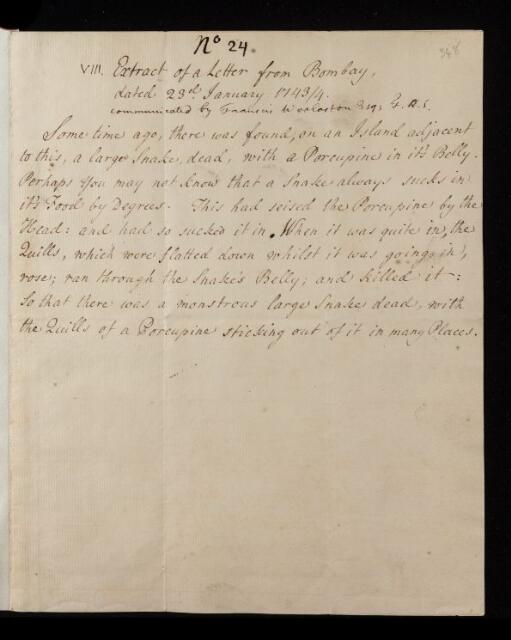 No 24.
348
VIII. Extract of a Letter from Bombay,
dated 23d January 1743/4.
communicated by Francis Wollaston Esq; F.R.S.
Some time ago, there was found, on an Island adjacent
to this, a large Snake, dead, with a Porcupine in it's Belly.
Perhaps you may not know that a Snake always sucks in
it's Food by Degrees. This had seised the Porcupine by the
Head: and had so sucked it in. When it was quite in, the
Quills, which were flatted down whilst it was going in,
rose; ran through the Snake's Belly; and killed it:
So that there was a monstrous large Snake dead, with
the Quills of a Porcupine sticking out of it in many Places.